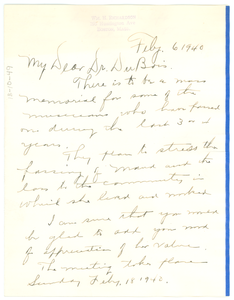 Feby. 6 1940
My Dear Dr. Du Bois.
There is to be a mass
memorial for some of the
musicians who have passed
on during the last 3 or 4
years.
They plan to stress the
passing of Maud and the
loss to the community in
which she lived and worked
I am sure that you would
be glad to add your word
of appreciation of her value.
The meeting takes place
Sunday Feby. 18 1940.